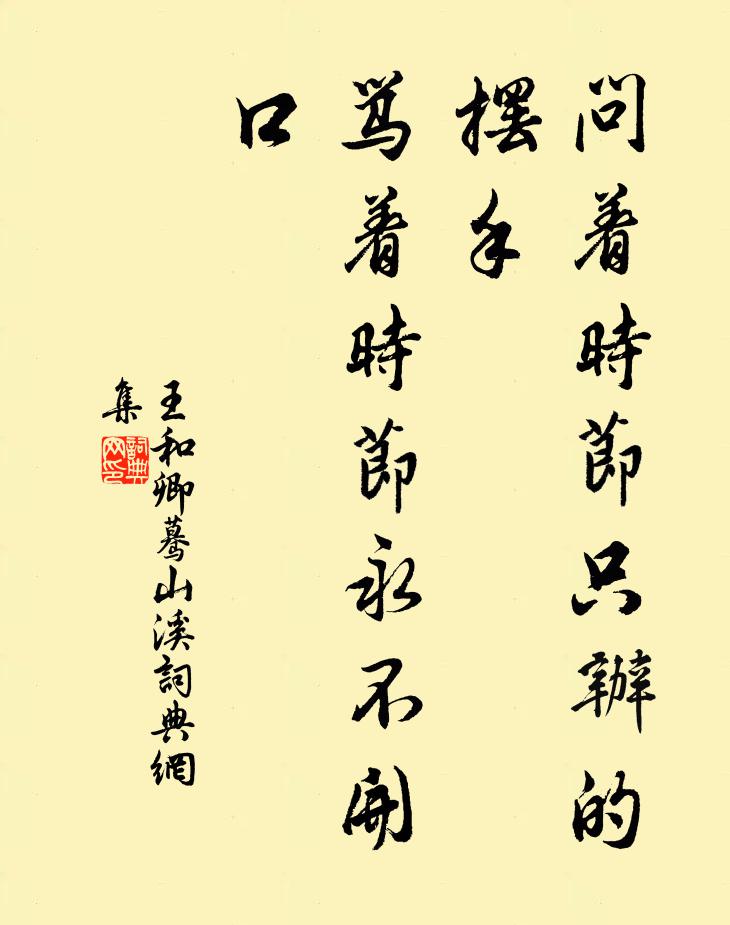 問着時節只辦的
擺手
罵着時節永不開
口
王和卿蓦山溪詞典網
集
詞典
网印